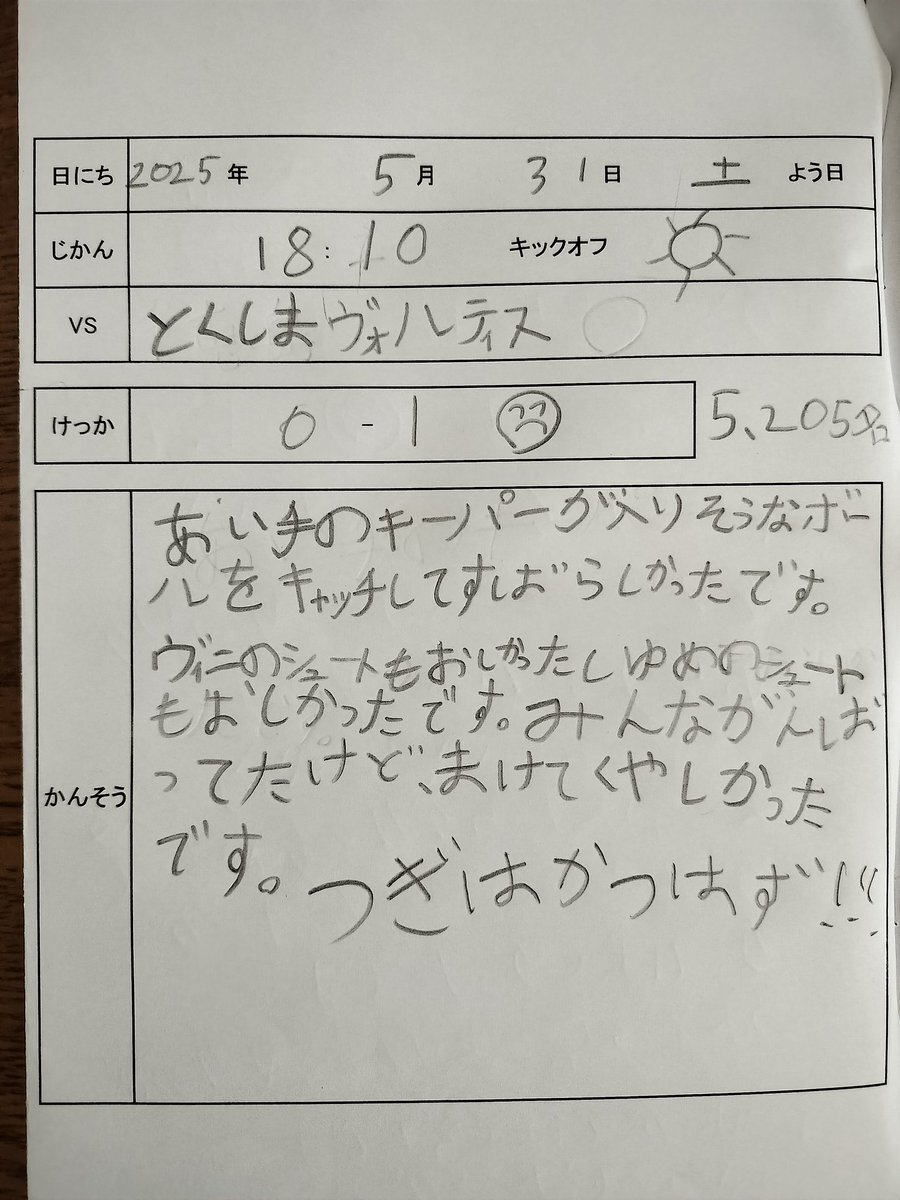 日にち 2025年 5月 31日 土 よう日
じかん 18:10 キックオフ
VS とくしまヴォルティス
けっか 0 - 1 5、205名
かんそう
あい手のキーパーが入りそうなボー
ルをキャッチしてすばらしかったです。
ヴィニのシュートもおしかったしゆめのシュート
もおしかったです。みんながんば
ってたけど、まけてくやしかった
です。つぎはかつはず!!!